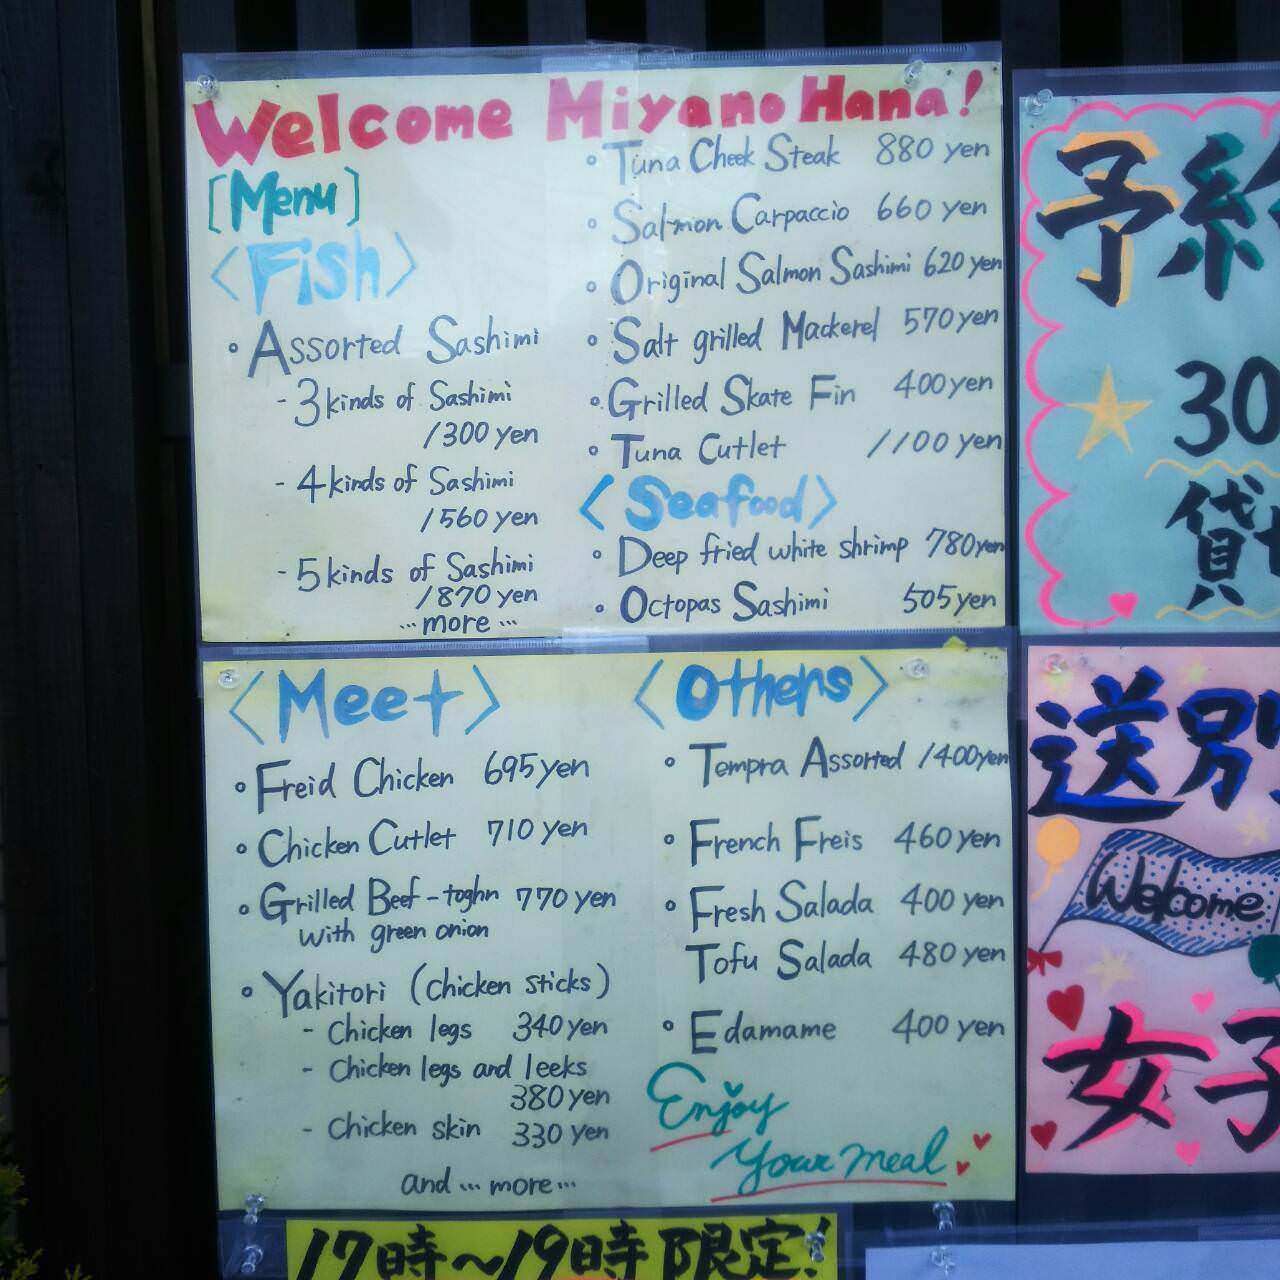 Welcome Miyano Hana!
[Menu]
<Fish>
• Assorted Sashimi
- 3 kinds of Sashimi
1300 yen
- 4 kinds of Sashimi
1560 yen
- 5 kinds of Sashimi
1870 yen
... more ...
• Tuna Cheek Steak 880 yen
• Salmon Carpaccio 660 yen
• Original Salmon Sashimi 620 yen
• Salt grilled Mackerel 570 yen
• Grilled Skate Fin 400 yen
• Tuna Cutlet 1100 yen
<Seafood>
• Deep fried white shrimp 780 yen
• Octopas Sashimi 505 yen
<Meet>
• Freid Chicken 695 yen
• Chicken Cutlet 710 yen
• Grilled Beef-toghn 770 yen
with green onion
• Yakitori (chicken sticks)
- Chicken legs 340 yen
- Chicken legs and leeks
380 yen
- Chicken skin 330 yen
and ... more ...
<Others>
• Tempra Assorted 1400 yen
• French Freis 460 yen
• Fresh Salada 400 yen
Tofu Salada 480 yen
• Edamame 400 yen
Enjoy
your meal
予
30
貸
送別
Welcome
女子
17時～19時限定!